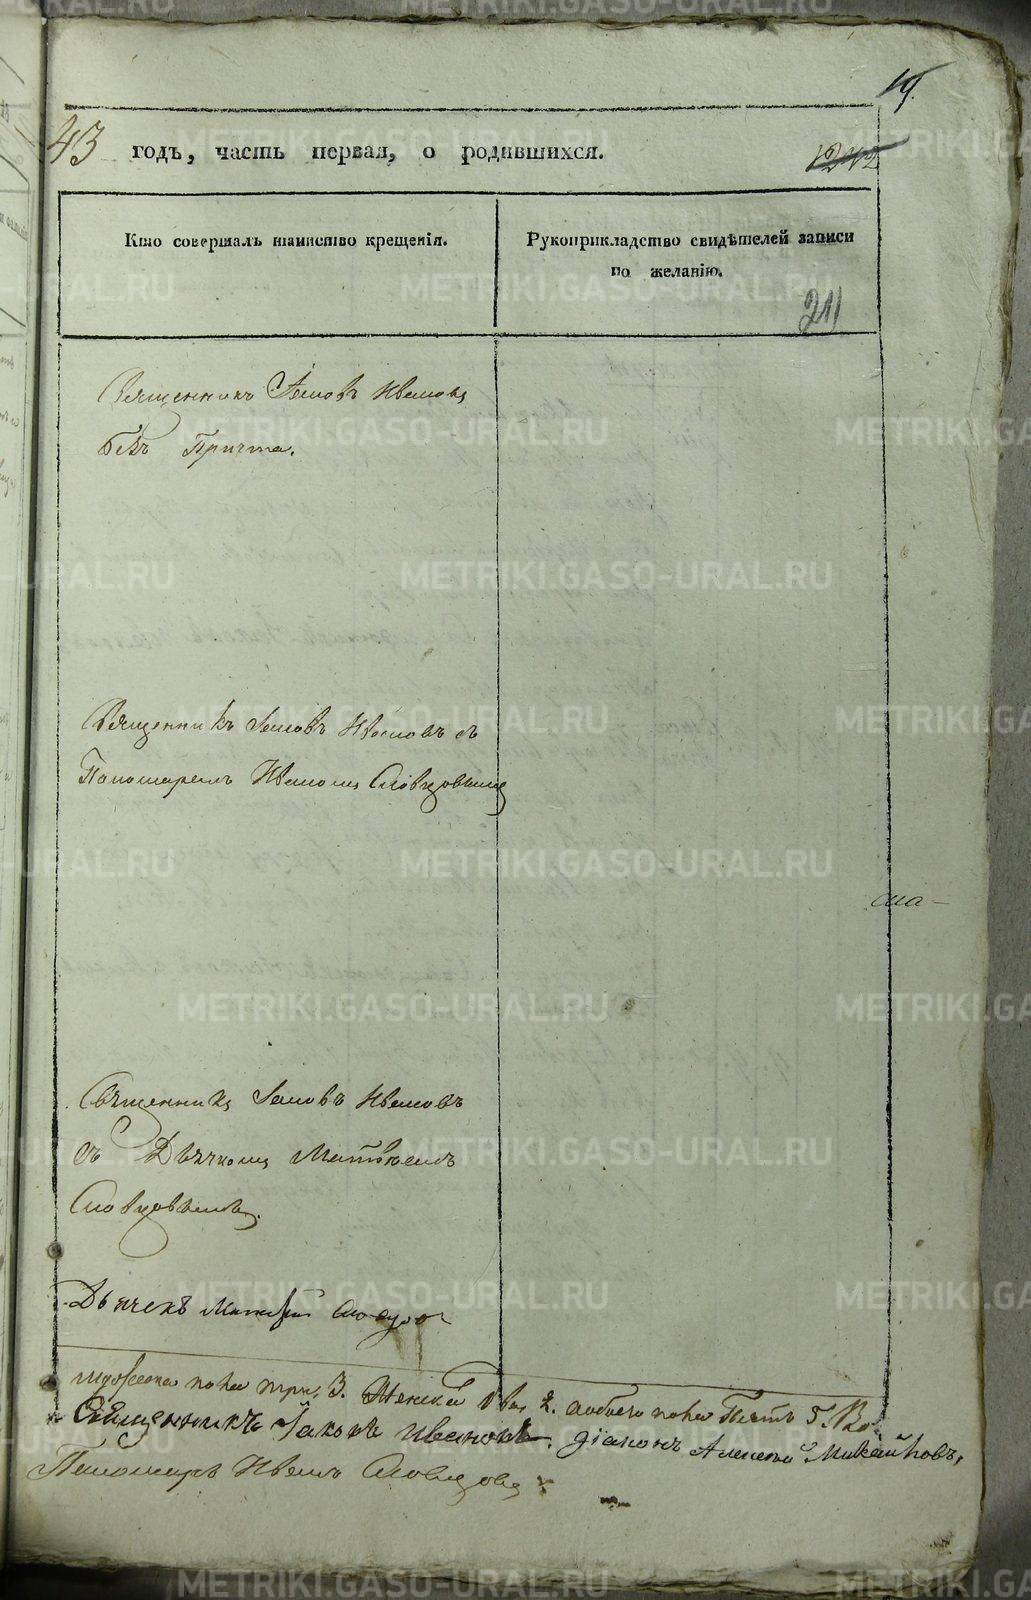 19.
43 годъ, часть первая, о родившихся.
1242
Кто совершалъ таинство крещенія.
Рукоприкладство свидѣтелей записи
по желанію.
211
Священникъ Іаковъ Ивановъ
безъ Причта.
Священникъ Іаковъ Ивановъ съ
Пономаремъ Иваномъ Словцовымъ
Священникъ Іаковъ Ивановъ
съ Дьячкомъ Матвѣемъ
Словцовымъ.
Дьячекъ Матвѣй Словцовъ
мужеска пола три, 3. Женска два 2. обоего пола Пять 5.
Священникъ Іаковъ Ивановъ. Діаконъ Алексѣй Михайловъ,
Пономарь Иванъ Словцовъ
METRIKI.GASO-URAL.RU